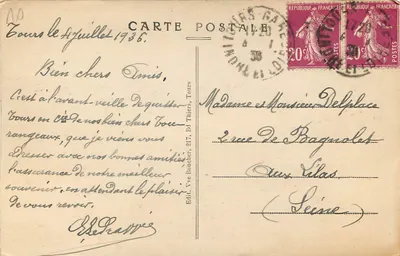 CARTE POSTALE
Tours le 4 Juillet 1936
Bien chers Amis,
C'est à l'avant-veille de quitter
Tours en Cie de nos bien chers Tou-
rangeaux, que je viens vous
adresser avec nos bonnes amitiés
l'assurance de notre meilleur
souvenir, en attendant le plaisir
de vous revoir.
Edit. Vve Boucher, 217, Bd Thiers, Tours
TOURS GARE
INDRE ET LOIRE
20c
20c
POSTES
Madame et Monsieur Delplace
2 rue de Bagnolet
aux Lilas
(Seine)